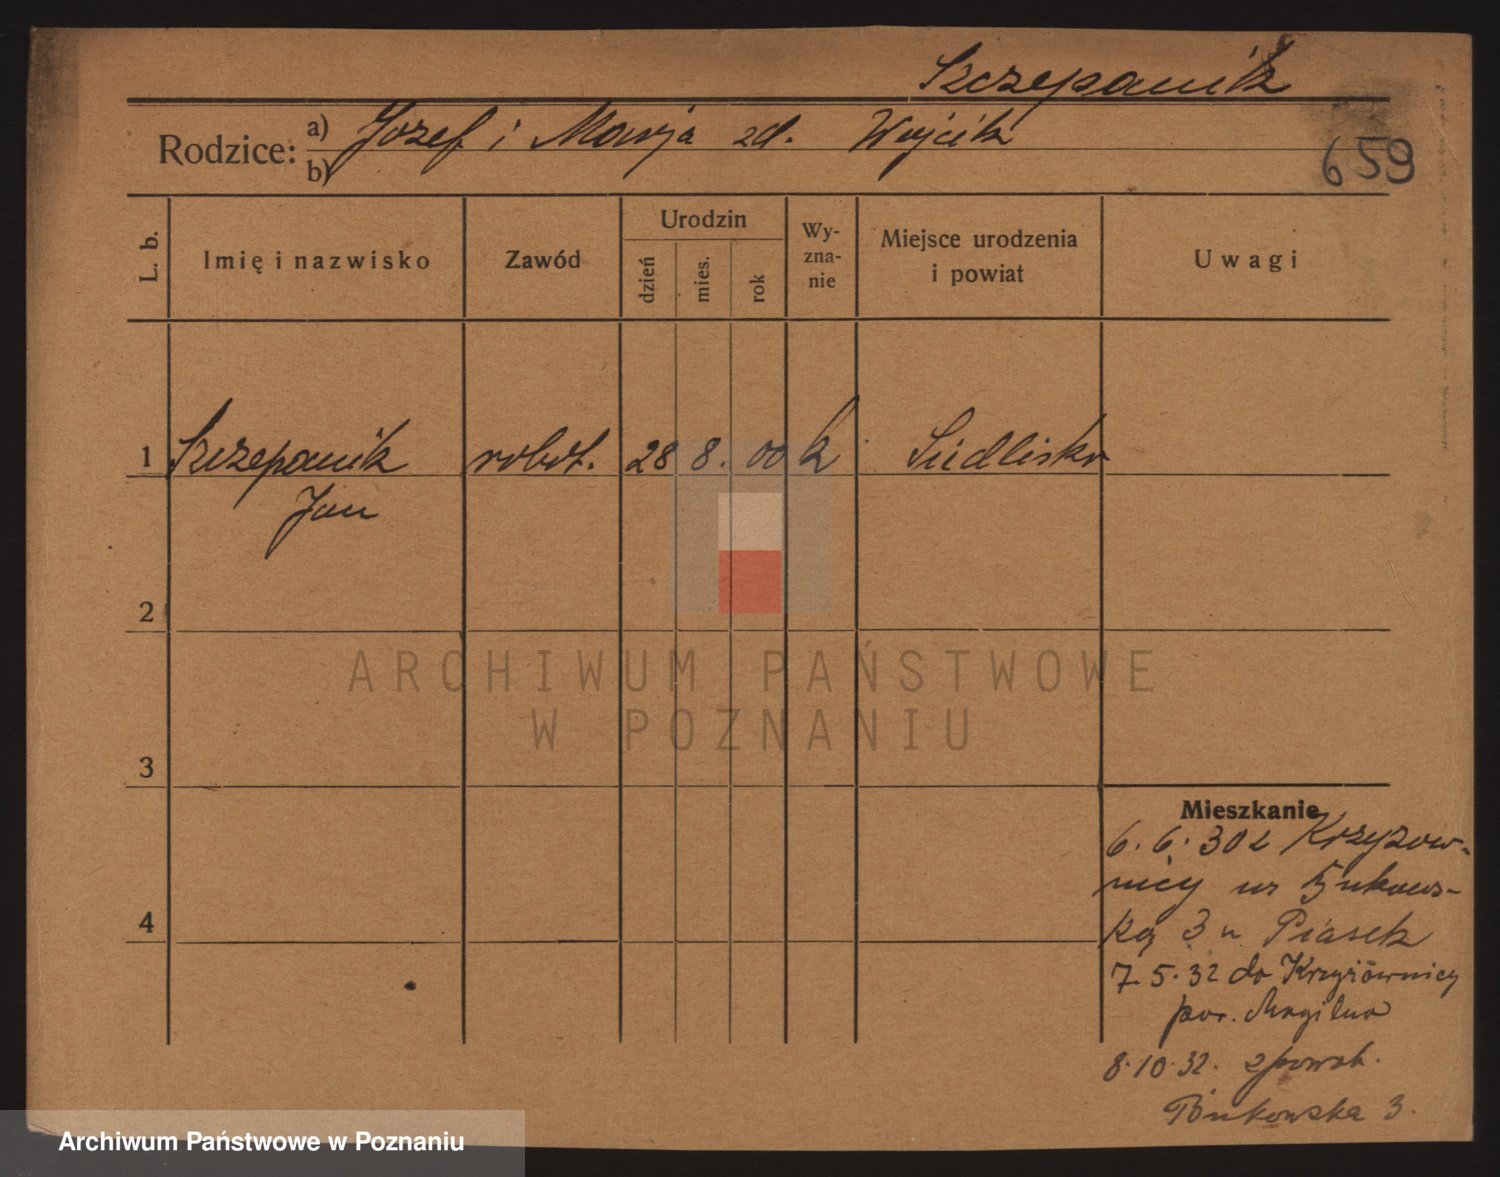 Szczepanik
Rodzice: a) Józef i Marja zd. Wójcik
b)
659
L. b. Imię i nazwisko Zawód Urodzin dzień mies. rok Wy-zna-nie Miejsce urodzenia i powiat Uwagi
1 Szczepanik robot. 28 8. 00 k Siedlisko
Jan
2
ARCHIWUM PAŃSTWOWE
W POZNANIU
3
Mieszkanie
6. 6. 30 z Krzyżow-
nicy ur Bukows-
ka 3 u Piasek
4
7.5.32 do Krzyżownicy
pow. Mogilno
8.10.32. z powrot.
Bukowska 3.
Archiwum Państwowe w Poznaniu